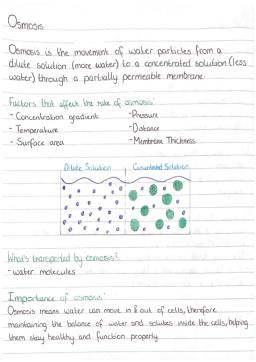 Osmosis
Osmosis is the movement of water particles from a
dilute solution (more water) to a concentrated solution (less
water) through a partially permeable membrane.
Factors that affect the rate of osmosis:
- Concentration gradient -Pressure
- Temperature -Distance
- Surface area -Membrane Thickness
Dilute Solution Concentrated Solution
What's transported by osmosis?
- water molecules
Importance of osmosis:
Osmosis means water can move in & out of cells, therefore
maintaining the balance of water and solutes inside the cells, helping
them stay healthy and function properly